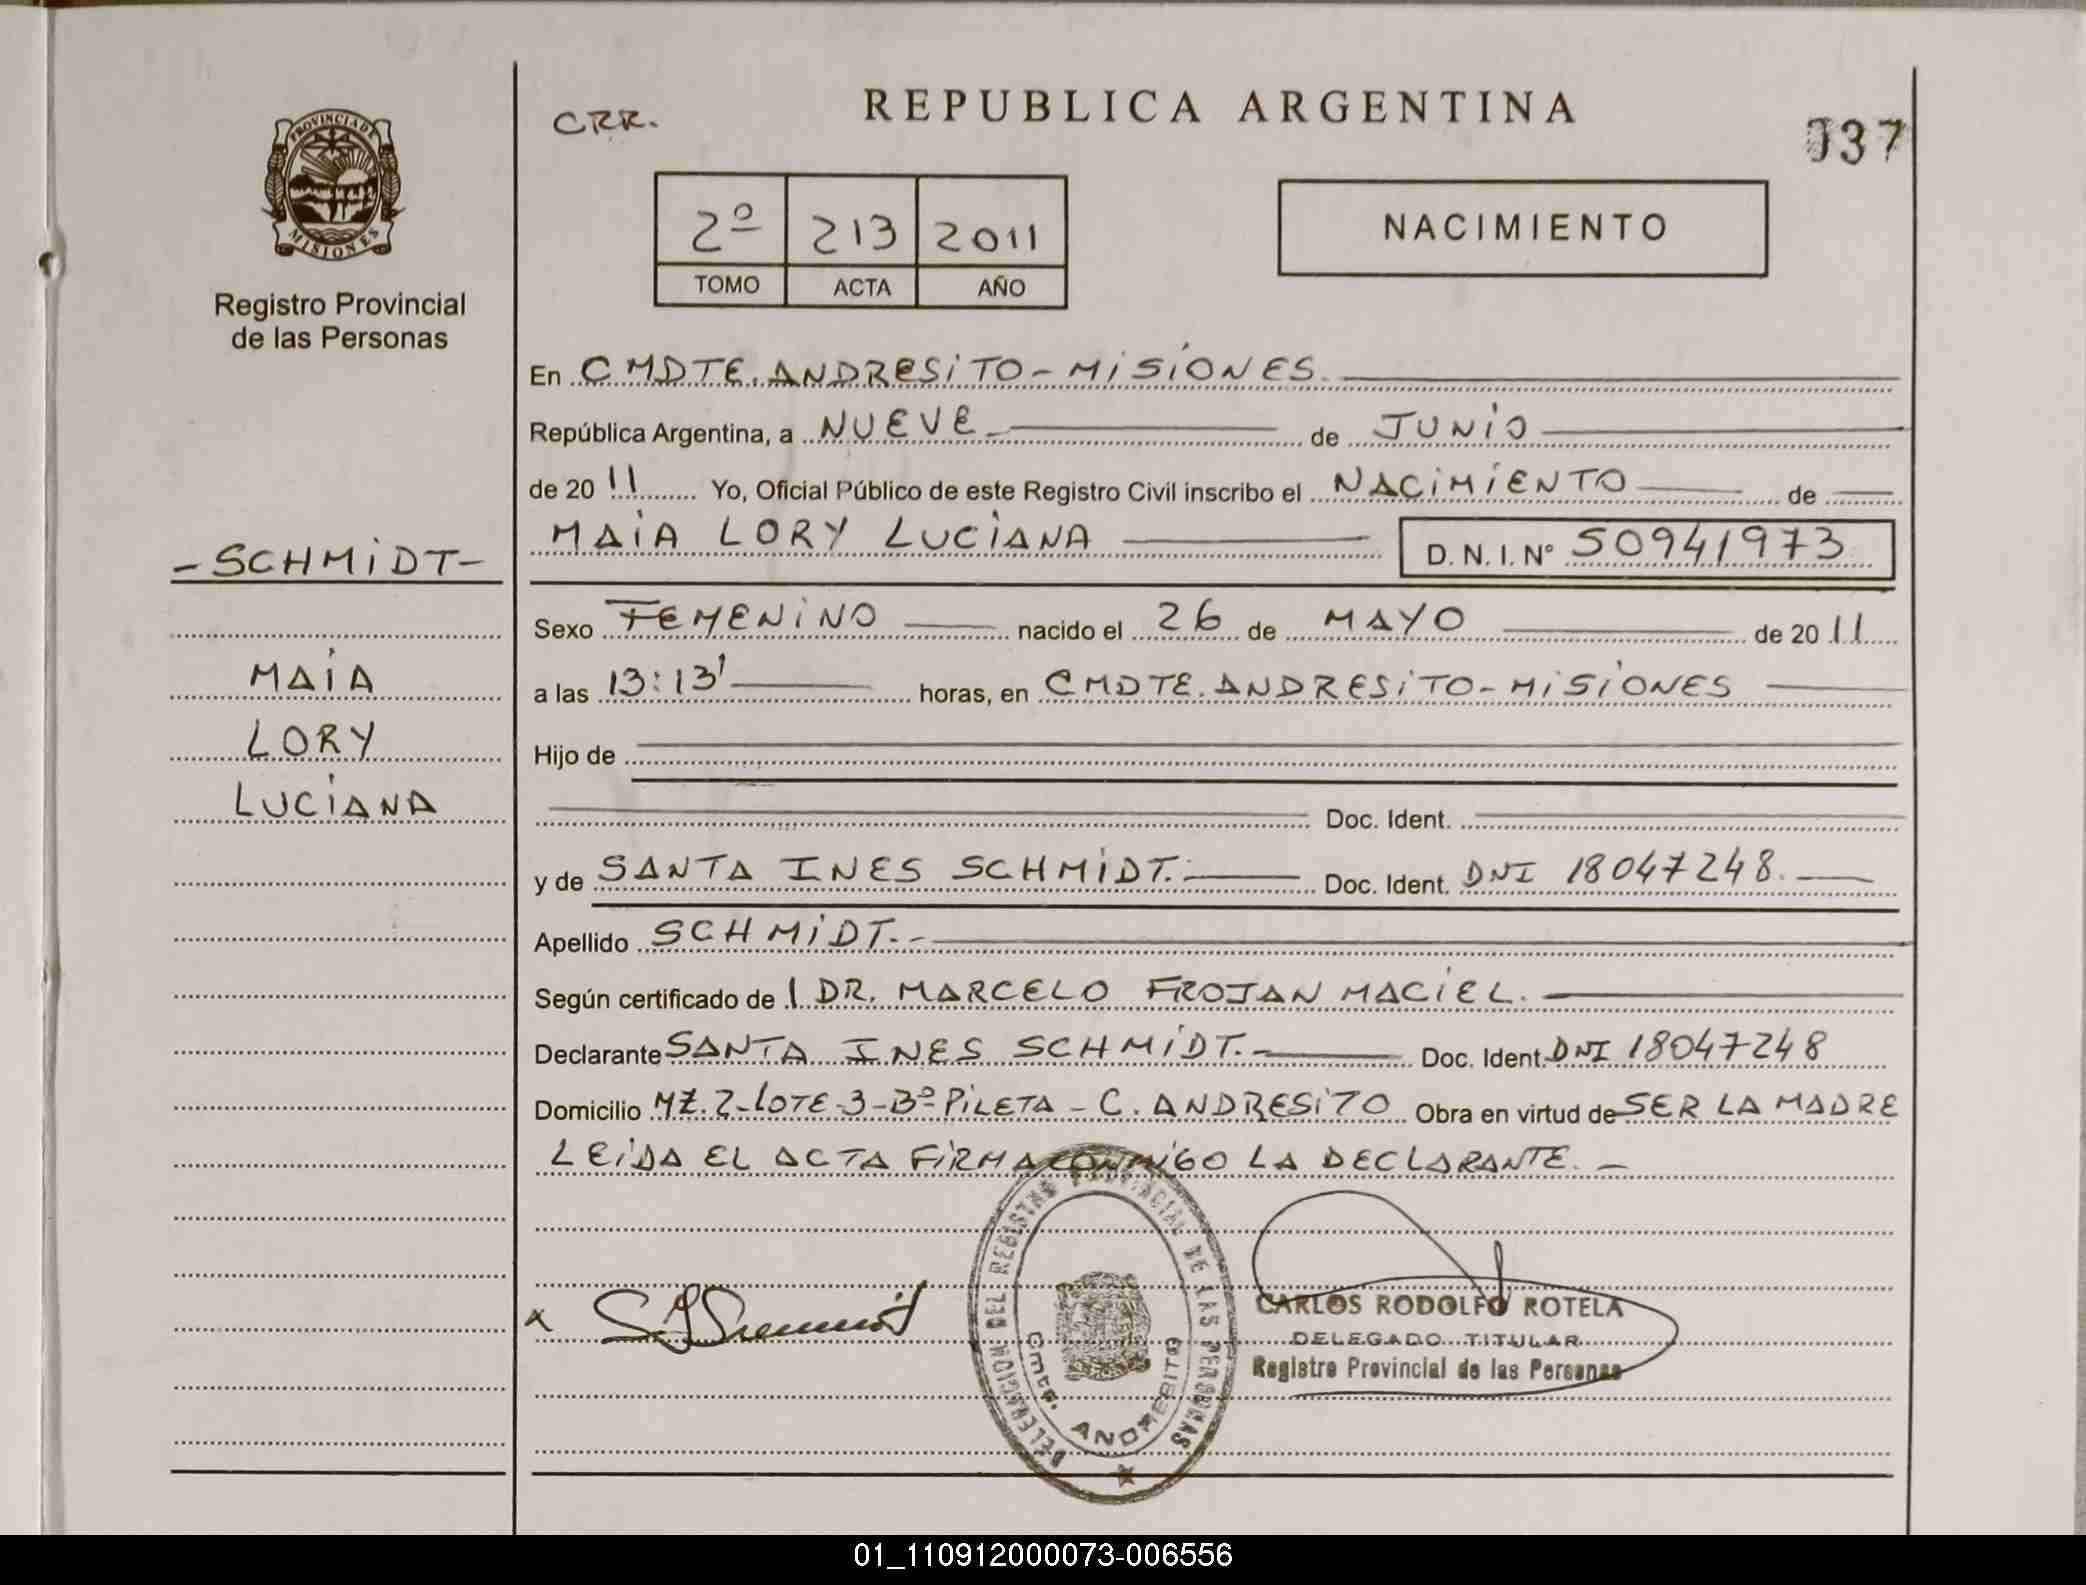 REPUBLICA ARGENTINA
CRR.
037
PROVINCIA DE
MISIONES
Registro Provincial
de las Personas
2º 213 2011
TOMO ACTA AÑO
NACIMIENTO
En CMDTE. ANDRESiTO - MiSiONES.
República Argentina, a NUEVE de JUNiO
de 2011 Yo, Oficial Público de este Registro Civil inscribo el NACiMiENTO de
MAiA LORY LUCiANA D. N. I. Nº 50941973
- SCHMiDT -
MAiA
LORY
LUCiANA
Sexo FEMENiNO nacido el 26 de MAYO de 2011
a las 13:13' horas, en CMDTE. ANDRESiTO - MiSiONES
Hijo de
Doc. Ident.
y de SANTA INES SCHMiDT. Doc. Ident. DNI 18047248.
Apellido SCHMiDT.-
Según certificado de DR. MARCELO FROJAN MACiEL.
Declarante SANTA INES SCHMiDT. Doc. Ident. DNI 18047248
Domicilio MZ. 2 - LOTE - 3 - Bº PiLETA - C. ANDRESiTO Obra en virtud de SER LA MADRE
LEiDA EL ACTA FiRMA CONMiGO LA DECLARANTE. -
DELEGACION DEL REGISTRO PROVINCIAL DE LAS PERSONAS
Cmte. ANDRESITO
x
CARLOS RODOLFO ROTELA
DELEGADO TITULAR
Registro Provincial de las Personas
01_110912000073-006556